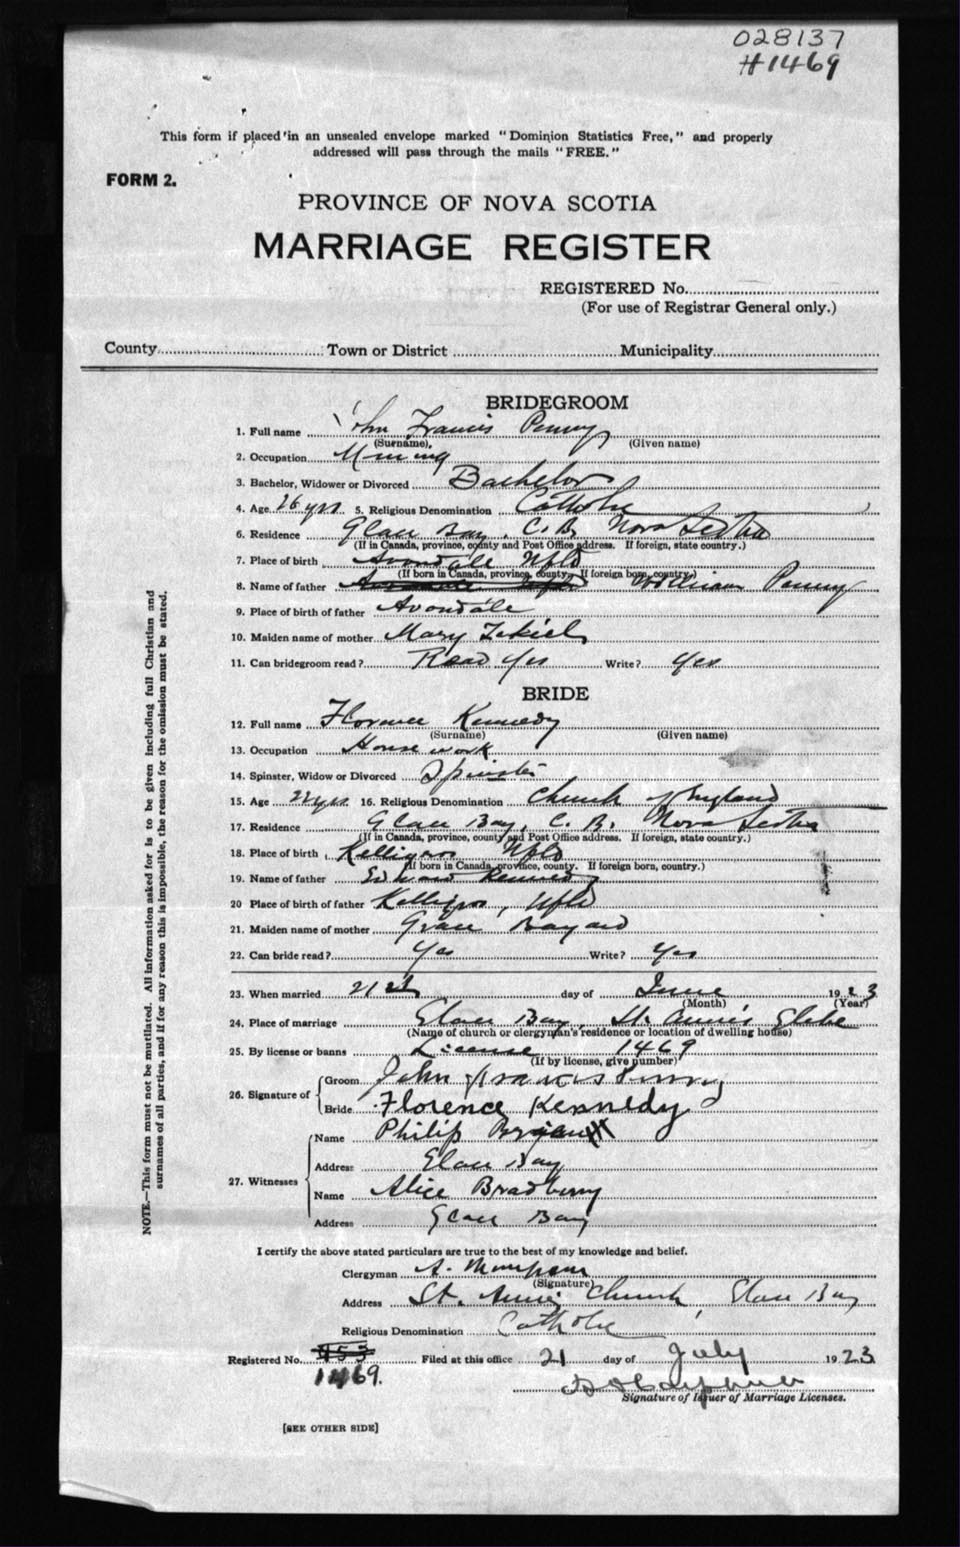 028137
#1469
This form if placed in an unsealed envelope marked "Dominion Statistics Free," and properly
addressed will pass through the mails "FREE."
FORM 2.
PROVINCE OF NOVA SCOTIA
MARRIAGE REGISTER
REGISTERED No.
(For use of Registrar General only.)
County Town or District Municipality
BRIDEGROOM
1. Full name John Francis Penny
(Surname) (Given name)
2. Occupation Mining
3. Bachelor, Widower or Divorced Bachelor
4. Age 26 yrs 5. Religious Denomination Catholic
6. Residence Glace Bay, C.B. Nova Scotia
(If in Canada, province, county and Post Office address. If foreign, state country.)
7. Place of birth Avondale Nfld
(If born in Canada, province, county. If foreign born, country.)
8. Name of father William Penny
9. Place of birth of father Avondale
10. Maiden name of mother Mary
11. Can bridegroom read? Read Yes Write? Yes
BRIDE
12. Full name Florence Kennedy
(Surname) (Given name)
13. Occupation House work
14. Spinster, Widow or Divorced Spinster
15. Age 22 yrs 16. Religious Denomination Church of England
17. Residence Glace Bay, C. B. Nova Scotia
(If in Canada, province, county and Post Office address. If foreign, state country.)
18. Place of birth Kelligros Nfld
(If born in Canada, province, county. If foreign born, country.)
19. Name of father Edward Kennedy
20 Place of birth of father Kelligros, Nfld
21. Maiden name of mother Grace
22. Can bride read? Yes Write? Yes
23. When married 21st day of June 1923
(Month) (Year)
24. Place of marriage Glace Bay, St. Anne's Glebe
(Name of church or clergyman's residence or location of dwelling house)
25. By license or banns License 1469
(If by license, give number)
26. Signature of
Groom John Francis Penny
Bride Florence Kennedy
27. Witnesses
Name Philip
Address Glace Bay
Name Alice Bradbury
Address Glace Bay
I certify the above stated particulars are true to the best of my knowledge and belief.
Clergyman A.
(Signature)
Address St. Anne's Church, Glace Bay
Religious Denomination Catholic
Registered No. 453 Filed at this office 21 day of July 1923
1469.
Signature of Issuer of Marriage Licenses.
[SEE OTHER SIDE]
NOTE.—This form must not be mutilated. All information asked for is to be given including full Christian and
surnames of all parties, and if for any reason this is impossible, the reason for the omission must be stated.